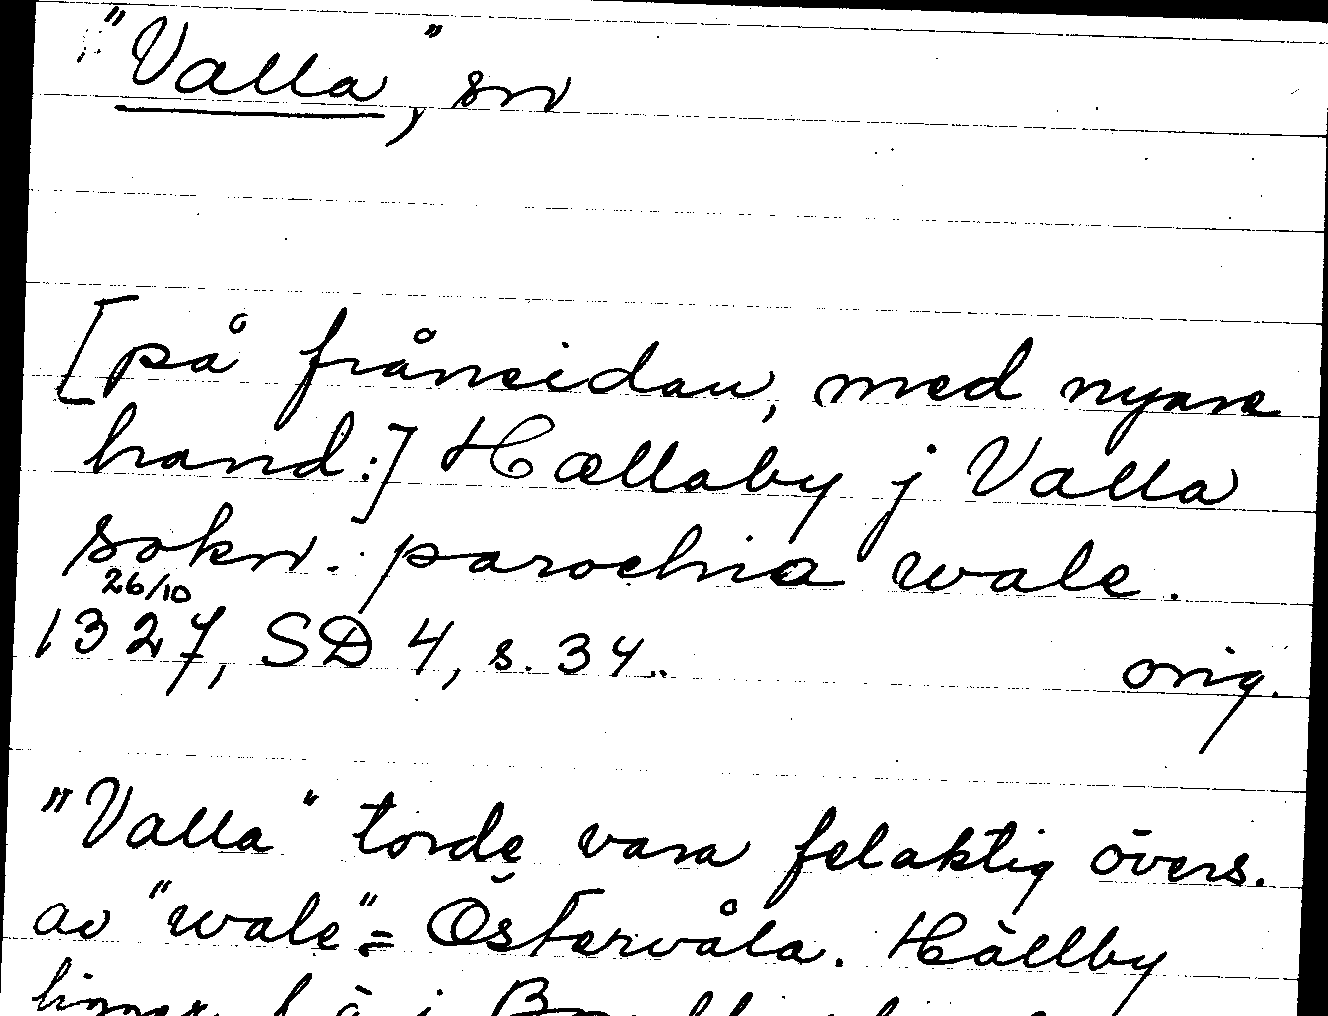 "Valla", sn
[på frånsidan, med nyare
hand:] Hællaby j Valla
sokn. parochia wale.
26/10
1327, SD 4, s. 34.. orig.
"Valla" torde vara felaktig övers.
av "wale" = Östervåla. Hällby
ligger